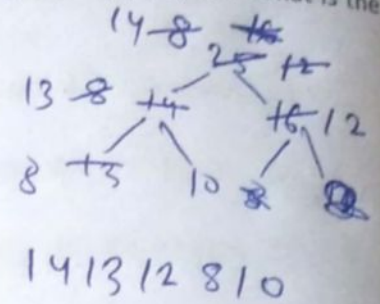 is the
14 8 16
25 12
13 8 14
16 12
8 13 10 8
14 13 12 8 10